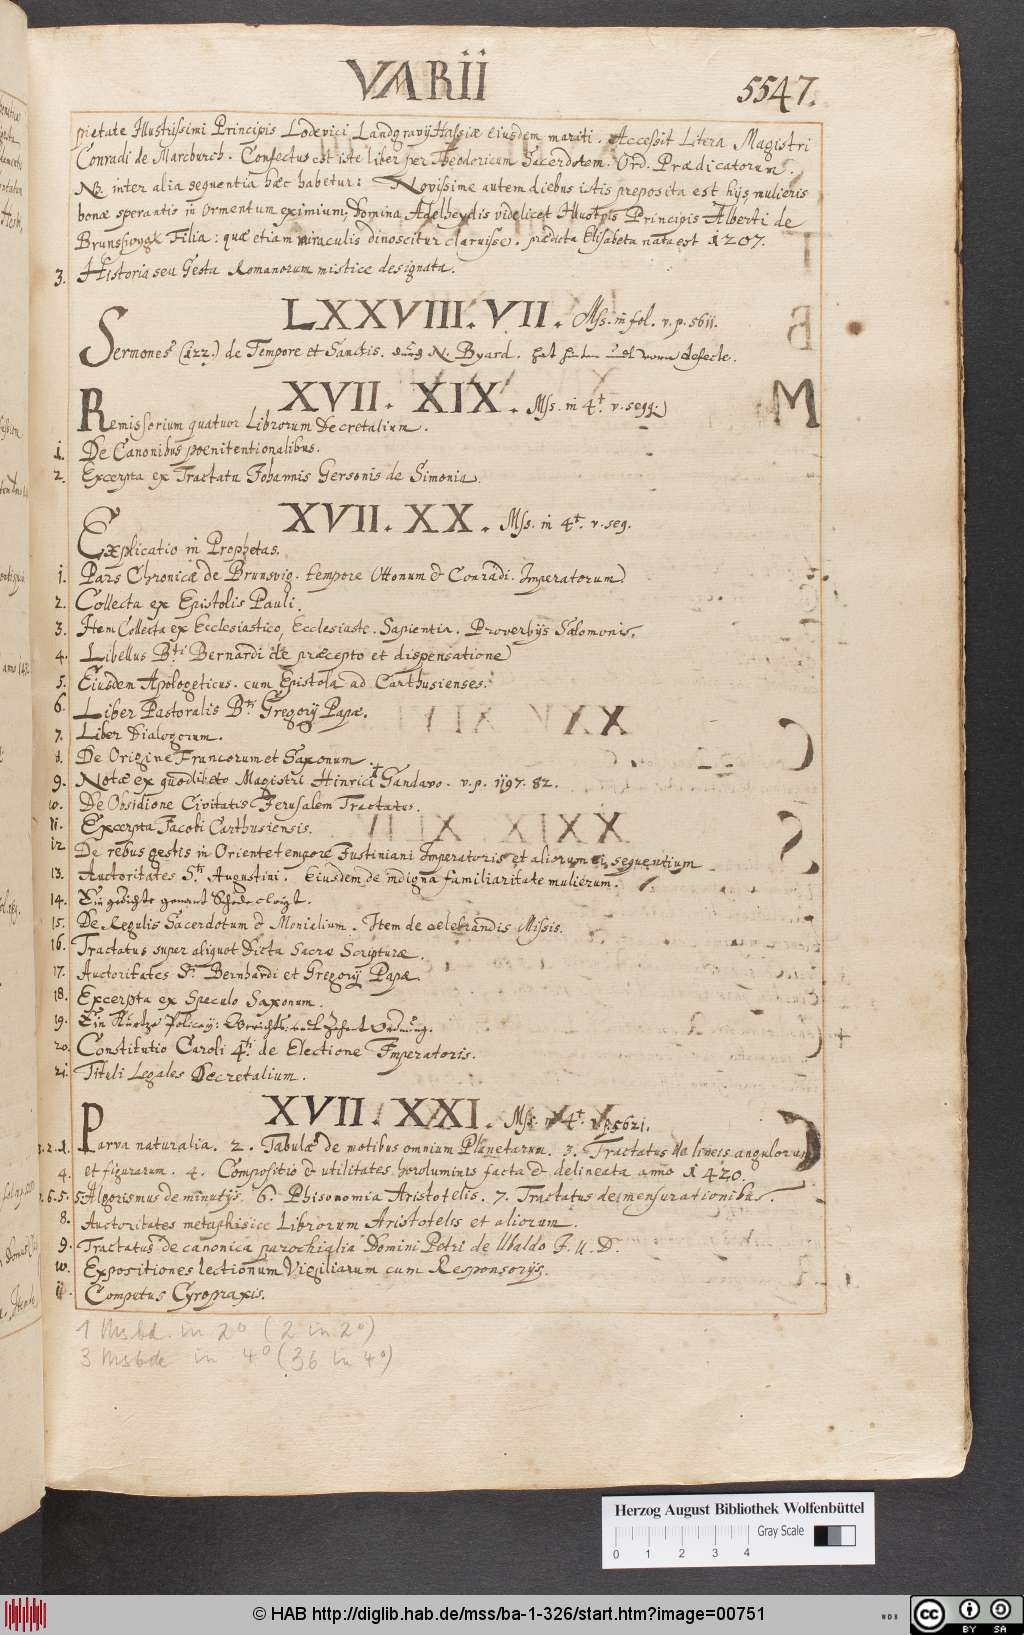 VARII
5547.
pietate Illustrissimi Principis Lodevici Landgravij Hassiæ eiusdem mariti. Accessit Litera Magistri
Conradi de Marcburch. Confectus est iste liber per Theodoricum Sacerdotem. Ord. Prædicatorum.
NB. inter alia sequentia hæc habetur: Novissime autem diebus istis preposita est hijs mulieris
bonæ sperantis in ormentum eximium, Domina Adelheydis videlicet Illustris Principis Alberti de
Filia: quæ etiam miraculis dinoscitur claruisse. prædicta Elisabeta nata est 1207.
3. Historia seu Gesta Romanorum mistice designata.
LXXVIII. VII. Mss. in fol. v. p. 5611.
Sermones (122.) de Tempore et Sanctis. durch N. Byard. hat hinten undt vorn defecte.
XVII. XIX. Mss. in 4t. v. seqq.
Remissorium quatuor Librorum Decretalium.
1. De Canonibus pœnitentionalibus.
2. Excerpta ex Tractatu Johannis Gersonis de Simonia.
XVII. XX. Mss. in 4t. v. seq.
Explicatio in Prophetas.
1. Pars Chronicæ de Brunsvig. tempore Ottonum & Conradi. Imperatorum.
2. Collecta ex Epistolis Pauli.
3. Item Collecta ex Ecclesiastico, Ecclesiaste. Sapientia. Proverbijs Salomonis.
4. Libellus Bti Bernardi de præcepto et dispensatione
5. Eiusdem Apologeticus. cum Epistola ad Carthusienses.
6. Liber Pastoralis Bti Gregorij Papæ.
7. Liber Dialogorum.
8. De Origine Francorum et Saxonum.
9. Notæ ex quodlibeto Magistri Hinrici Gandavo. v. p. 1197. 82.
10. De Obsidione Civitatis Jerusalem Tractatus.
11. Excerpta Jacobi Carthusiensis.
12. De rebus gestis in Oriente tempore Justiniani Imperatoris et aliorum ei sequentium
13. Auctoritates Sti Augustini. Eiusdem de indigna familiaritate mulierum.
14. Ein gedichte genant
15. De Regulis Sacerdotum & Monialium. Item de celebrandis Missis.
16. Tractatus super aliquot Dicta Sacræ Scripturæ.
17. Auctoritates St. Bernhardi et Gregorij Papæ.
18. Excerpta ex Speculo Saxonum.
19. Ein Kurtze Policeij: Gerichts: undt Ordnung.
20. Constitutio Caroli 4ti de Electione Imperatoris.
21. Tituli Legales Decretalium.
XVII. XXI. Mss. in 4t. v. p. 5621.
1. Parva naturalia. 2. Tabulæ de motibus omnium Planetarum. 3. Tractatus de lineis angulorum
4. et figurarum. 4. Compositio & utilitates horoluminis facta & delineata anno 1420.
5. Algorismus de minutijs. 6. Phisonomia Aristotelis. 7. Tractatus de mensurationibus.
8. Auctoritates metaphisice Librorum Aristotelis et aliorum.
9. Tractatus de canonica parochialia Domini Petri de Ubaldo J. U. D.
10. Expositiones lectionum Vigiliarum cum Responsorijs.
11. Computus Cyropraxis.
1 Msbd. in 2° (2 in 2°)
3 Msbde in 4° (36 in 4°)
Herzog August Bibliothek Wolfenbüttel
Gray Scale
0 1 2 3 4
© HAB http://diglib.hab.de/mss/ba-1-326/start.htm?image=00751
WDB
cc BY SA